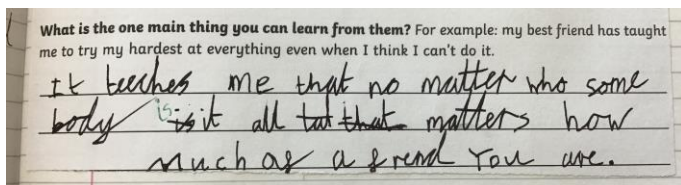 What is the one main thing you can learn from them? For example: my best friend has taught
me to try my hardest at everything even when I think I can't do it.
It teeches me that no matter who some
body is it all tat that matters how
much as a frend You are.